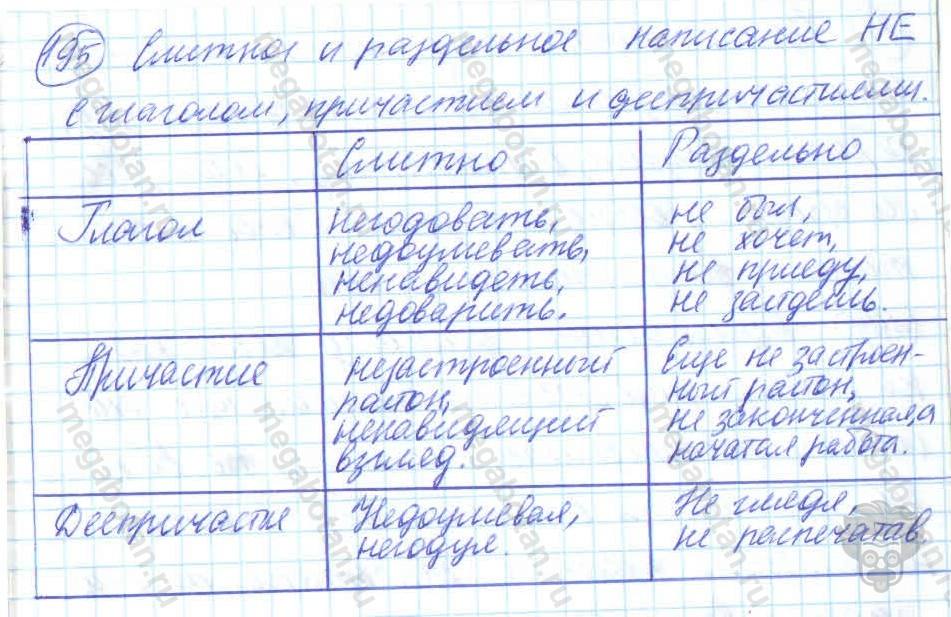 195 Слитное и раздельное написание НЕ
с глаголом, причастием и деепричастиями.
Слитно
Раздельно
Глагол
негодовать,
недоумевать,
ненавидеть,
недоварить.
не был,
не хочет,
не приеду,
не зайдёшь.
Причастие
незастроенный
район,
ненавидящий
взгляд.
Еще не застроен-
ный район,
не законченная, а
начатая работа.
Деепричастие
Недоумевая,
негодуя.
Не глядя,
не распечатав
megabotan.ru